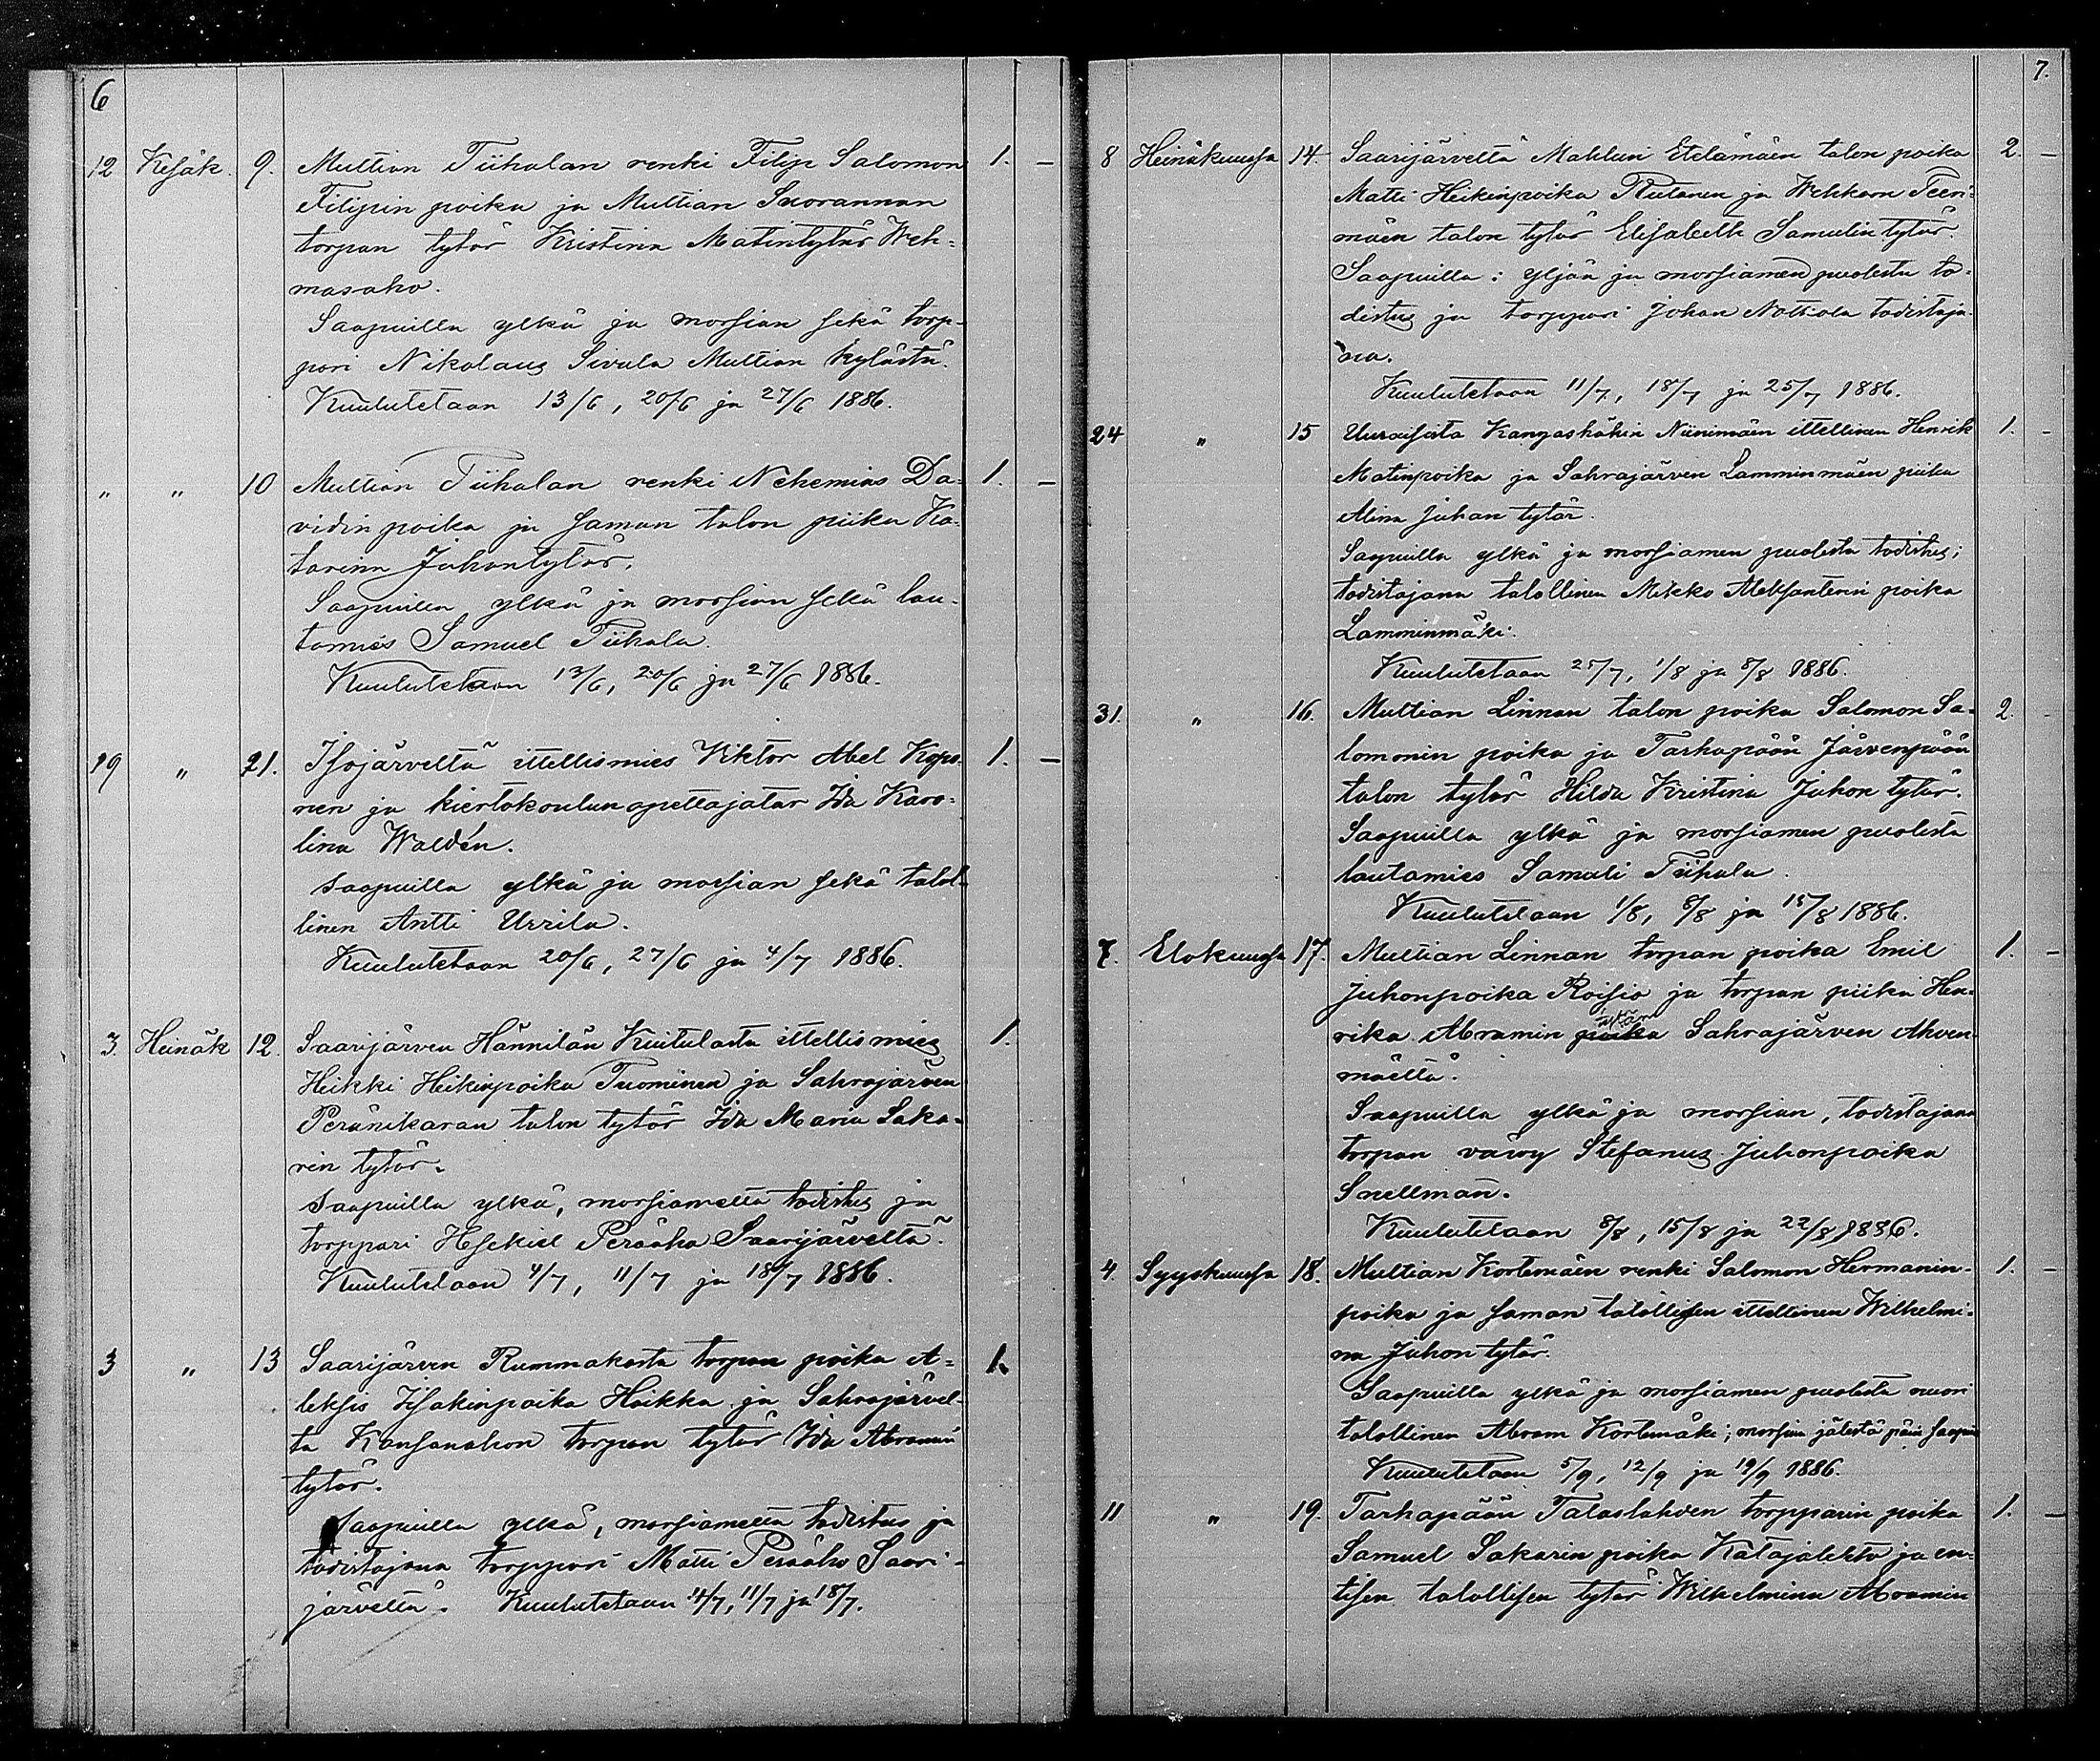 6
12 Kesäk. 9. Multian Tiihalan renki Filip Salomon 1. —
Filipin poika ja Multian Suorannan
torpan tytär Kristina Matintytär Weh-
masaho.
Saapuilla ylkä ja morsian sekä torp-
pari Nikolaus Sivula Multian kylästä.
Kuulutetaan 13/6, 20/6 ja 27/6 1886.
„ „ 10 Multian Tiihalan renki Nehemias Da- 1. —
vidin poika ja saman talon piika Ka-
tarina Juhontytär.
Saapuilla ylkä ja morsian sekä lau-
tamies Samuel Tiihala.
Kuulutetaan 13/6, 20/6 ja 27/6 1886.
19 „ 21. Isojärveltä ittellismies Viktor Abel Kopo- 1. —
nen ja kiertokoulunopettajatar Ida Karo-
lina Waldén.
Saapuilla ylkä ja morsian sekä talol-
linen Antti Urrila.
Kuulutetaan 20/6, 27/6 ja 4/7 1886.
3. Heinäk 12. Saarijärven Hännilän Kuitulasta ittellismies 1.
Heikki Heikinpoika Tuominen ja Sahrajärven
Peränikaran talon tytär Ida Maria Saka-
rin tytär.
Saapuilla ylkä, morsiamelta todistus ja
torppari Hesekiel Perääho Saarijärveltä.
Kuulutetaan 4/7, 11/7 ja 18/7 1886.
3 „ 13 Saarijärven Rummakasta torpan poika A- 1.
leksis Isakinpoika Hoikka ja Sahrajärvel-
tä Kansanahon torpan tytär Ida Abramin
tytär.
Saapuilla ylkä, morsiamelta todistus ja
todistajana torppari Matti Perääho Saari-
järveltä. Kuulutetaan 4/7, 11/7 ja 18/7.
7.
8 Heinäkuussa 14. Saarijärveltä Mahlun Etelämäen talon poika 2. —
Matti Heikinpoika Rutanen ja Wehkaan Teeri-
mäen talon tytär Elisabeth Samulin tytär.
Saapuilla: yljän ja morsiamen puolesta to-
distus ja torppari Johan Nottola todistaja-
na.
Kuulutetaan 11/7, 18/7 ja 25/7 1886.
24 „ 15 Uuraisista Kangashäkin Niinimäen ittellinen Henrik 1. —
Matinpoika ja Sahrajärven Lamminmäen piika
Alina Juhan tytär.
Saapuilla ylkä ja morsiamen puolesta todistus;
todistajana talollinen Mikko Aleksanterin poika
Lamminmäki.
Kuulutetaan 25/7, 1/8 ja 8/8 1886.
31. „ 16. Multian Linnan talon poika Salomon Sa- 2.
lomonin poika ja Tarhapään Järvenpään
talon tytär Hilda Kristina Juhon tytär.
Saapuilla ylkä ja morsiamen puolesta
lautamies Samuli Tiihala.
Kuulutetaan 1/8, 8/8 ja 15/8 1886.
7. Elokuussa 17. Multian Linnan torpan poika Emil 1. —
Juhonpoika Roisio ja torpan piika Hen-
rika Abramin poika tytär Sahrajärven Ahven-
mäeltä.
Saapuilla ylkä ja morsian, todistajana
torpan vävy Stefanus Juhonpoika
Snellman.
Kuulutetaan 8/8, 15/8 ja 22/8 1886.
4. Syyskuussa 18. Multian Kortemäen renki Salomon Hermanin- 1. —
poika ja saman talollisen ittellinen Wilhelmi-
na Juhon tytär.
Saapuilla ylkä ja morsiamen puolesta nuori
talollinen Abram Kortemäki; morsian jälestä päin saapui
Kuulutetaan 5/9, 12/9 ja 19/9 1886.
11 „ 19. Tarhapään Talaslahden torpparin poika 1. —
Samuel Sakarin poika Katajalehto ja en-
tisen talollisen tytär Wilhelmina Abramin